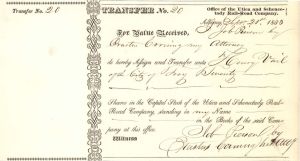 Transfer No. 20
TRANSFER No. 20
Office of the Utica and Schenectady Rail-Road Company.
Albany, Sept 28. 1833
For Value Received, I Job Pierson by
Erastus Corning my Attorney
do hereby Assign and Transfer unto Henry Vail
of the City of Troy Twenty
Shares in the Capital Stock of the Utica and Schenectady Rail-
Road Company, standing in my Name
in the Books of the said Company at this office.
Witness
Job Pierson by
Erastus Corning his Atty